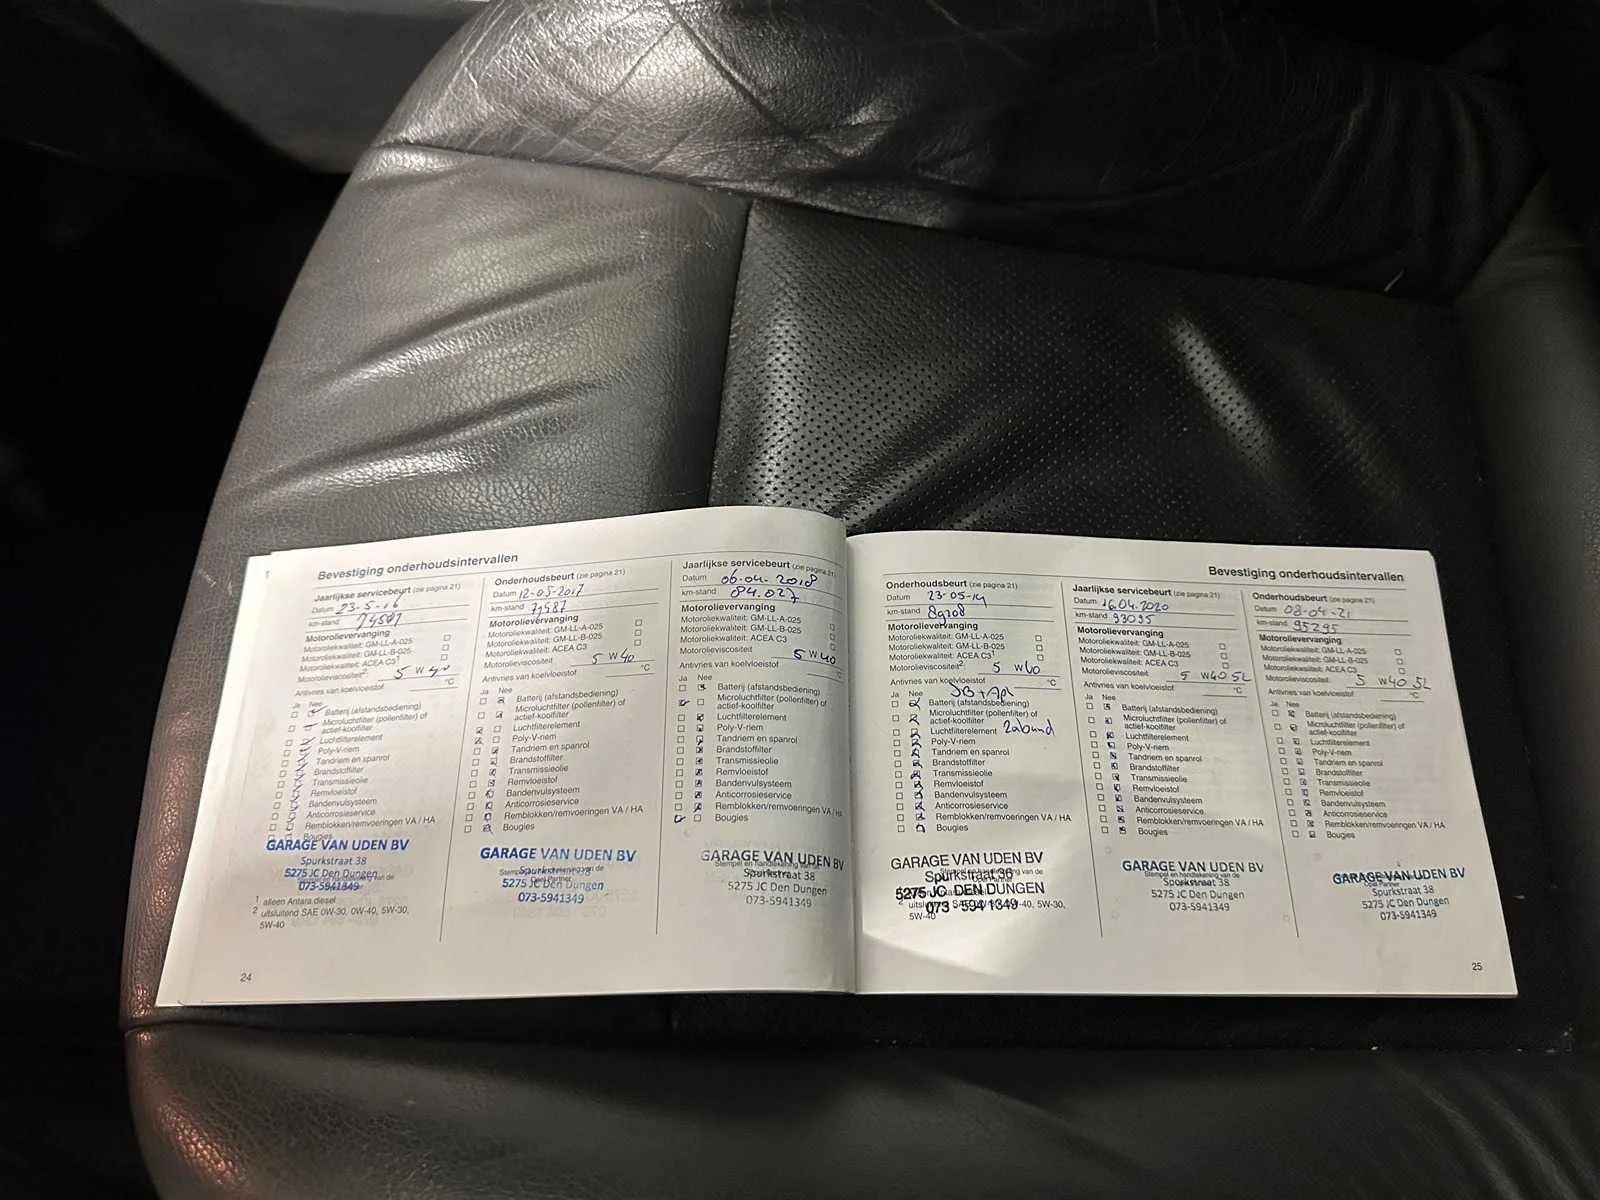 Bevestiging onderhoudsintervallen
Jaarlijkse servicebeurt (zie pagina 21)
Datum 23-5-16
km-stand
Motorolievervanging
Motoroliekwaliteit: GM-LL-A-025
Motoroliekwaliteit: GM-LL-B-025
Motoroliekwaliteit: ACEA C3¹
Motorolieviscositeit² 5 W 40
Antivries van koelvloeistof °C
Ja Nee
Batterij (afstandsbediening)
Microluchtfilter (pollenfilter) of
actief-koolfilter
Luchtfilterelement
Poly-V-riem
Tandriem en spanrol
Brandstoffilter
Transmissieolie
Remvloeistof
Bandenvulsysteem
Anticorrosieservice
Remblokken/remvoeringen VA / HA
Bougies
GARAGE VAN UDEN BV
Spurkstraat 38
5275 JC Den Dungen
073-5941349
¹ alleen Antara diesel
² uitsluitend SAE 0W-30, 0W-40, 5W-30,
5W-40
24
Onderhoudsbeurt (zie pagina 21)
Datum 12-05-2017
km-stand 79487
Motorolievervanging
Motoroliekwaliteit: GM-LL-A-025
Motoroliekwaliteit: GM-LL-B-025
Motoroliekwaliteit: ACEA C3
Motorolieviscositeit 5 W 40
Antivries van koelvloeistof °C
Ja Nee
Batterij (afstandsbediening)
Microluchtfilter (pollenfilter) of
actief-koolfilter
Luchtfilterelement
Poly-V-riem
Tandriem en spanrol
Brandstoffilter
Transmissieolie
Remvloeistof
Bandenvulsysteem
Anticorrosieservice
Remblokken/remvoeringen VA / HA
Bougies
GARAGE VAN UDEN BV
Spurkstraat 38
5275 JC Den Dungen
073-5941349
Jaarlijkse servicebeurt (zie pagina 21)
Datum 06-04-2018
km-stand 84.027
Motorolievervanging
Motoroliekwaliteit: GM-LL-A-025
Motoroliekwaliteit: GM-LL-B-025
Motoroliekwaliteit: ACEA C3
Motorolieviscositeit 5 W 40
Antivries van koelvloeistof °C
Ja Nee
Batterij (afstandsbediening)
Microluchtfilter (pollenfilter) of
actief-koolfilter
Luchtfilterelement
Poly-V-riem
Tandriem en spanrol
Brandstoffilter
Transmissieolie
Remvloeistof
Bandenvulsysteem
Anticorrosieservice
Remblokken/remvoeringen VA / HA
Bougies
GARAGE VAN UDEN BV
Stempel en handtekening van de
Spurkstraat 38
5275 JC Den Dungen
073-5941349
Bevestiging onderhoudsintervallen
Onderhoudsbeurt (zie pagina 21)
Datum 23-05-19
km-stand 89708
Motorolievervanging
Motoroliekwaliteit: GM-LL-A-025
Motoroliekwaliteit: GM-LL-B-025
Motoroliekwaliteit: ACEA C3¹
Motorolieviscositeit² 5 W 40
Antivries van koelvloeistof °C
Ja Nee
Batterij (afstandsbediening)
Microluchtfilter (pollenfilter) of
actief-koolfilter
Luchtfilterelement
Poly-V-riem
Tandriem en spanrol
Brandstoffilter
Transmissieolie
Remvloeistof
Bandenvulsysteem
Anticorrosieservice
Remblokken/remvoeringen VA / HA
Bougies
GARAGE VAN UDEN BV
Spurkstraat 38
5275 JC DEN DUNGEN
073 - 594 1349
5W-40
Jaarlijkse servicebeurt (zie pagina 21)
Datum 16.04.2020
km-stand 93095
Motorolievervanging
Motoroliekwaliteit: GM-LL-A-025
Motoroliekwaliteit: GM-LL-B-025
Motoroliekwaliteit: ACEA C3
Motorolieviscositeit 5 W 40 5L
Antivries van koelvloeistof °C
Ja Nee
Batterij (afstandsbediening)
Microluchtfilter (pollenfilter) of
actief-koolfilter
Luchtfilterelement
Poly-V-riem
Tandriem en spanrol
Brandstoffilter
Transmissieolie
Remvloeistof
Bandenvulsysteem
Anticorrosieservice
Remblokken/remvoeringen VA / HA
Bougies
GARAGE VAN UDEN BV
Stempel en handtekening van de
Spurkstraat 38
5275 JC Den Dungen
073-5941349
Onderhoudsbeurt (zie pagina 21)
Datum 08-04-21
km-stand 95295
Motorolievervanging
Motoroliekwaliteit: GM-LL-A-025
Motoroliekwaliteit: GM-LL-B-025
Motoroliekwaliteit: ACEA C3
Motorolieviscositeit 5 W 40 5L
Antivries van koelvloeistof °C
Ja Nee
Batterij (afstandsbediening)
Microluchtfilter (pollenfilter) of
actief-koolfilter
Luchtfilterelement
Poly-V-riem
Tandriem en spanrol
Brandstoffilter
Transmissieolie
Remvloeistof
Bandenvulsysteem
Anticorrosieservice
Remblokken/remvoeringen VA / HA
Bougies
GARAGE VAN UDEN BV
Opel Partner
Spurkstraat 38
5275 JC Den Dungen
073-5941349
25